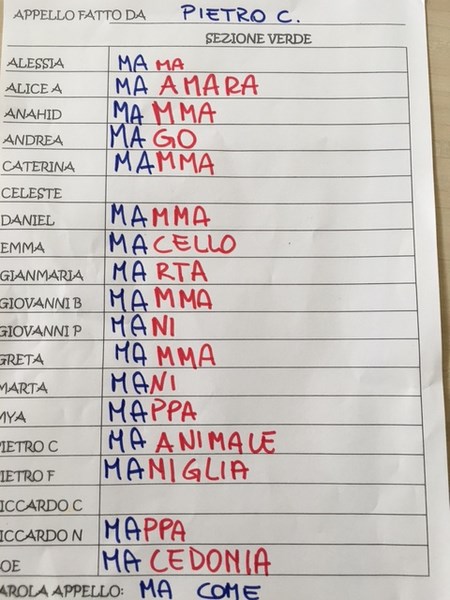 APPELLO FATTO DA PIETRO C.
SEZIONE VERDE
ALESSIA MA MA
ALICE A MA AMARA
ANAHID MAMMA
ANDREA MAGO
CATERINA MAMMA
CELESTE
DANIEL MAMMA
EMMA MACELLO
GIANMARIA MARTA
GIOVANNI B MAMMA
GIOVANNI P MANI
GRETA MAMMA
MARTA MANI
MYA MAPPA
IETRO C MA ANIMALE
IETRO F MANIGLIA
ICCARDO C
ICCARDO N MAPPA
OE MA CEDONIA
AROLA APPELLO: MA COME